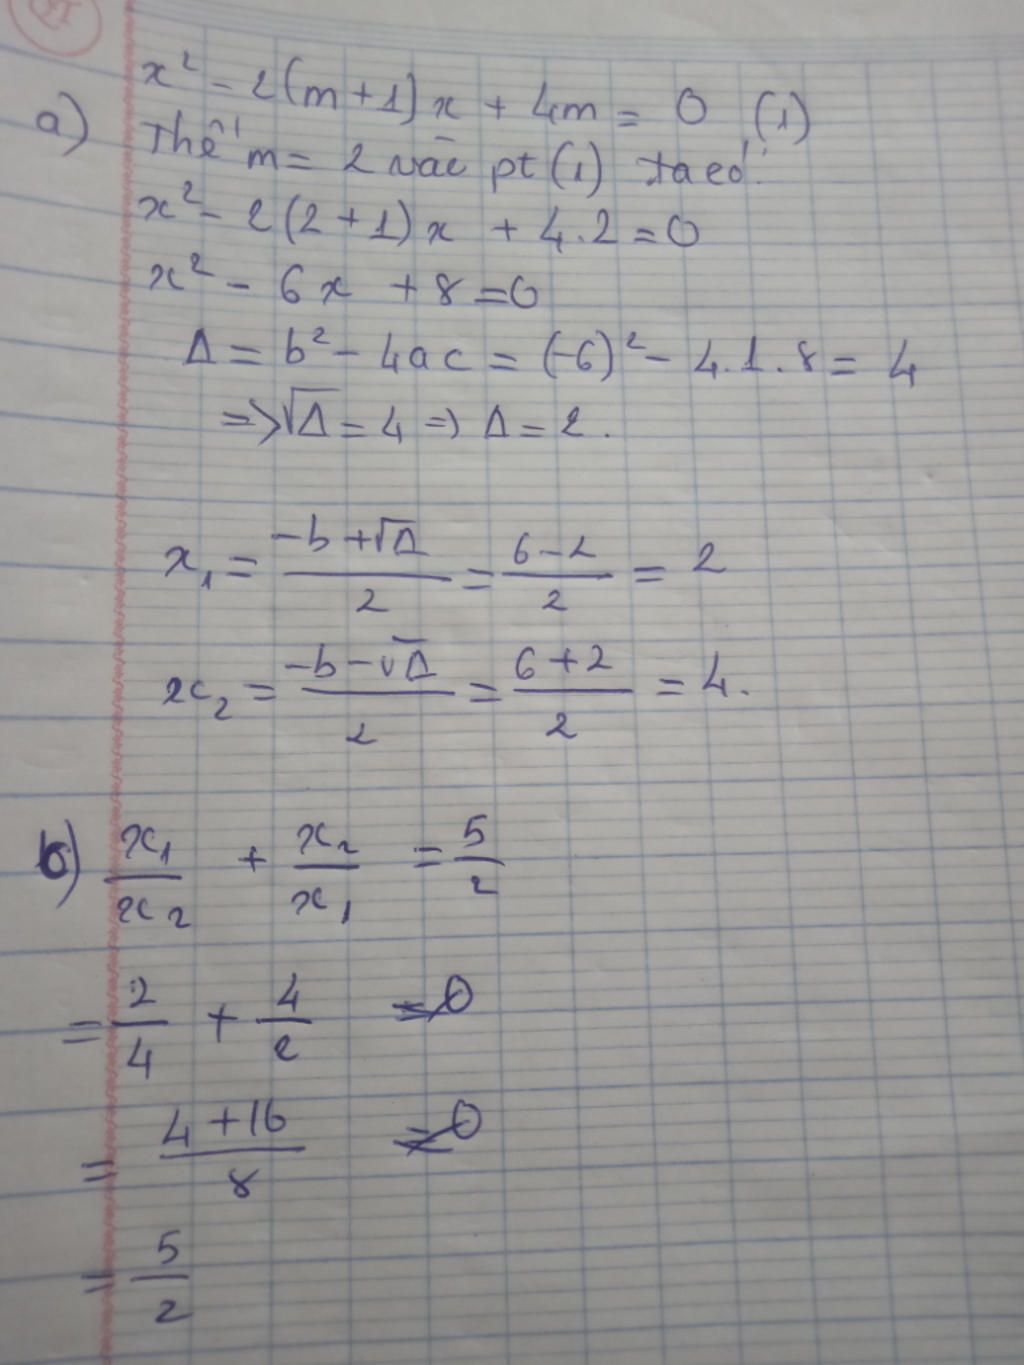 x² - 2(m+1)x + 4m = 0 (1)
a) Thế m = 2 vào pt (1) ta có:
x² - 2(2+1)x + 4.2 = 0
x² - 6x + 8 = 0
Δ = b² - 4ac = (-6)² - 4.1.8 = 4
=> √Δ = 4 => Δ = 2.
x₁ = (-b + √Δ)/2 = (6 - 2)/2 = 2
x₂ = (-b - √Δ)/2 = (6 + 2)/2 = 4.
b) x₁/x₂ + x₂/x₁ = 5/2
= 2/4 + 4/2 = 0
= (4 + 16)/8 = 0
= 5/2